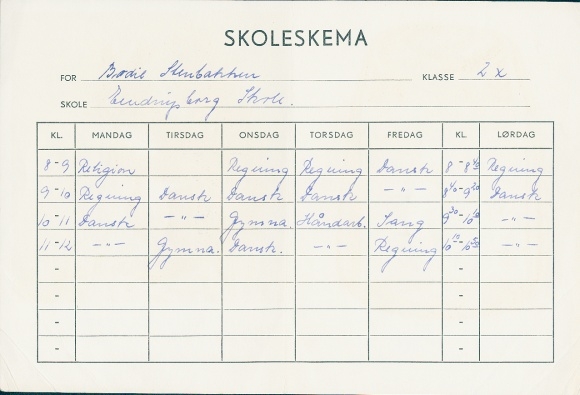 SKOLESKEMA
FOR Bodil Stenbakken KLASSE 2 x
SKOLE Ejendrupborg Skole.
KL. MANDAG TIRSDAG ONSDAG TORSDAG FREDAG KL. LØRDAG
8-9 Religion Regning Regning Dansk 8-8 40 Regning
9-10 Regning Dansk Dansk Dansk -"- 8 40-9 20 Dansk
10-11 Dansk -"- Gymna. Håndarb. Sang 9 30-10 10 -"-
11-12 -"- Gymna. Dansk. -"- Regning 10 10-10 50 -"-
- -
- -
- -
- -